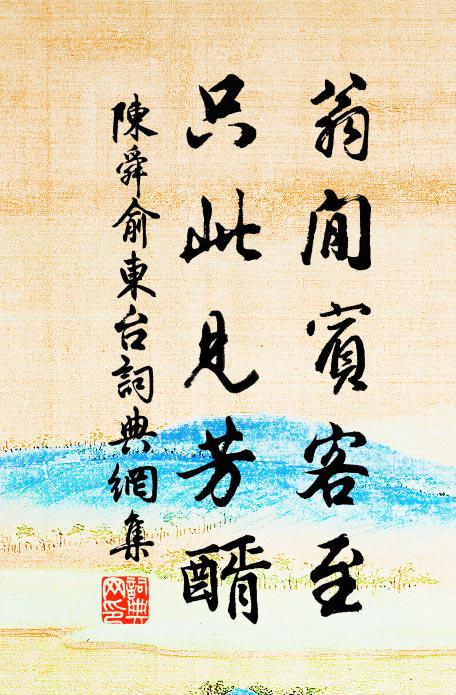 翁閒賓客至
只此見芳醑
陳舜俞東台詞典網集